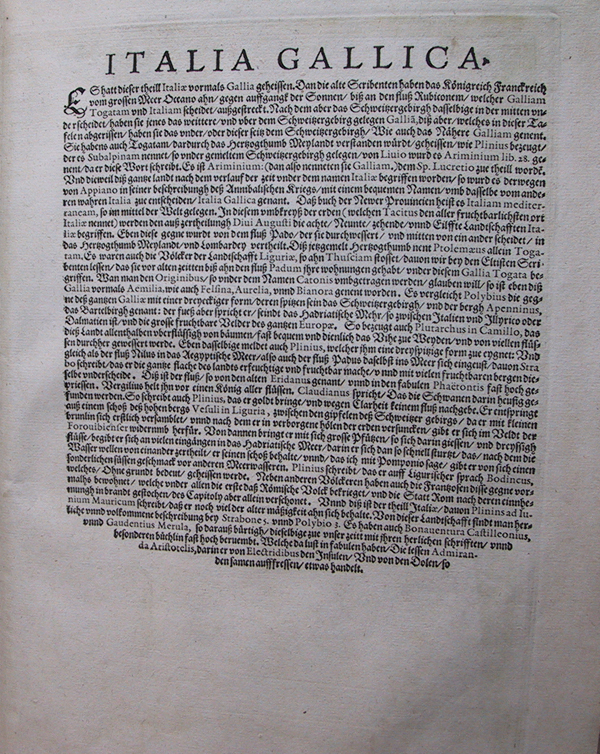 ITALIA GALLICA.
ES hatt dieser theill Italiæ vormals Gallia geheissen. Dan die alte Scribenten haben das Königreich Franckreich
vom grossen Meer Oceano ahn/ gegen auffgangk der Sonnen/ biß an den fluß Rubiconem/ welcher Galliam
Togatam und Italiam scheidet/ außgestreckt. Nach dem aber das Schweitzergebirg dasselbige in der mitten vn-
derscheidet/ haben sie jenes das weitere/ vnd vber dem Schweitzergirg gelegen Galliã, diß aber/ welches in dieser Ta-
felen abgerissen/ haben sie das vnder/ oder dieser seitz dem Schweitzergebirg/ Wie auch das Nähere Galliam genent.
Sie habens auch Togatam, dardurch das Hertzogthumb Meylandt verstanden würdt/ geheissen/ wie Plinius bezeugt/
der es Subalpinam nennet/ so vnder gemeltem Schweitzergebirgh gelegen/ von Liuio wurd es Ariminium lib. 28. ge-
nent/ da er diese Wort schreibt. Es iß Ariminium (dan also nenneten sie Galliam,) dem Sp. Lucretio zur theill wordẽ.
Vnd dieweil diß gantz landt nach dem verlauff der zeit vnder dem namen Italiæ begriffen worden/ so wurd es derwegen
von Appiano in seiner beschreibungh deß Annibalischen Kriegs/ mit einem bequemen Namen/ vmb dasselbe vom ande-
ren wahren Italia zu entscheiden/ Italia Gallica genant. Daß buch der Newer Prouincien heist es Italiam mediter-
raneam, so im mittel der Welt gelegen. In diesem vmbkreyß der erden (welchen Tacitus den aller fruchtbarlichsten ort
Italiæ nennet) werden auß zertheilungh Diui Augusti die achte/ Neunte/ zehende/ vnnd Eilffte Landschafften Ita-
liæ begriffen. Eben diese gegne wurdt von dem fluß Pado/ der sie durchwessert/ vnd mitten von ein ander scheidet/ in
das Hertzogthumb Meylandt/ vnd Lombardey vertheilt. Diß jetzgemelt Hertzogthumb nent Ptolemæus allein Toga-
tam. Es waren auch die Völcker der Landschafft Liguriæ, so ahn Thusciam stosset/ dauon wir bey den Elesten Scri-
benten lesen/ das sie vor alten zeitten biß ahn den fluß Padum ihre wohnungen gehabt/ vnder diesem Gallia Togata be-
griffen. Wan man den Originibus/ so vnder dem Namen Catonis vmbgettragen werden/ glauben will/ so ist eben diß
Gallia vormals Aemilia, wie auch Felsina, Aurelia, vnnd Bianora genent worden. Es vergleicht Polybius die geg-
ne deß gantzen Galliæ mit einer dreyeckiger form/ deren spitzen sein das Schweitzergebirgh/ vnd der bergh Apenninus,
das Vartelbirgh genant: der fueß aber spricht er/ seindt das Hadriatische Mehr/ so zwischen Italien vnd Illyrico oder
Dalmatien ist/ vnd die grosse fruchtbare Velder des gantzen Europæ. So bezeugt auch Plutarchus in Camillo, das
dieß Landt allenthalben vberflüssigh von bäumen/ fast bequem vnd dienlich das Vihe zur Weyden/ vnd von vielen flüß-
sen durchher gewessert werde. Eben dasselbige meldet auch Plinius, welcher ihm eine dreyspitzige form zu eygnet: Vnd
gleich als der fluß Nilus in das Aegyptische Meer/ also auch der fluß Padus daselbst ins Meer sich eingeust/ dauon Stra
bo schreibt/ das er die gantze flache des landts erfeuchtige vnd fruchtbar mache/ vnnd mit vielen fruchtbaren bergen die-
selbe vnderscheide. Diß ist der fluß/ so von den alten Eridanus genant/ vnnd in den fabulen Phaëtontis fast hoch ge-
priessen. Vergilius helt ihn vor einen König aller flüssen. Claudianus spricht/ Das die Schwanen darin heuffig ge-
funden werden. So schreibt auch Plinius, das er golt bringe/ vnd wegen Clarheit keinem fluß nachgebe. Er entspringe
auß einem schoß deß hohen bergs Vesuli in Liguria, zwischen den gipfelen deß Schweitzer gebirgs/ da er mit kleinen
brunlin sich erstlich versamblet/ vnnd nach dem er in verborgene hölen der erden versuncken/ gibt er sich im Veldt der
Forouibienser widerumb herfür. Von dannen bringt er mit sich grosse Pfützen/ so sich darin giessen/ vnd dreyssigh
flüsse/ begibt er sich an vielen eingängen in das Hadriatische Meer/ darin er sich dan so schnell sturtzt/ das/ nach dem die
Wasser wellen von einander zertheilt/ er seinen schoß behalte/ vnnd/ das ich mit Pomponio sage/ gibt er von sich einen
sonderlichen süssen geschmack vor anderen Meerwasseren. Plinius schreibt/ das er auff Ligurischer sprach Bodincus,
welches/ Ohne grundt bedeut/ geheissen werde. Neben anderen Völckeren haben auch die Frantzosen disse gegne vor-
malhs bewohnet/ welche vnder allen die erste daß Römische Volck bekrieget/ vnd die Statt Rom nach deren einnhe-
mungh in brandt gestochen/ des Capitoly aber allein verschonet. Vnnd diß ist der theill Italiæ/ dauon Plinius ad Iu-
nium Mauricum schreibt/ daß er noch viel der alter mäßigkeit ahn sich behalte. Von dieser Landschafft findt man her-
liche vnnd volkommene beschreibung bey Strabone 5. vnnd Polybio 3. Es haben auch Bonauentura Castilleonius,
vnnd Gaudentius Merula, so darauß bürtigh/ dieselbige zue vnser zeitt mit ihren herlichen schrifften/ vnnd
besonderen büchlin fast hoch berumbt. Welche da lust in fabulen haben/ Die lessen Admiran-
da Aristotelis, darin er von Electridibus den Insulen/ Vnd von den Dolen/ so
den samen auffressen/ etwas handelt.